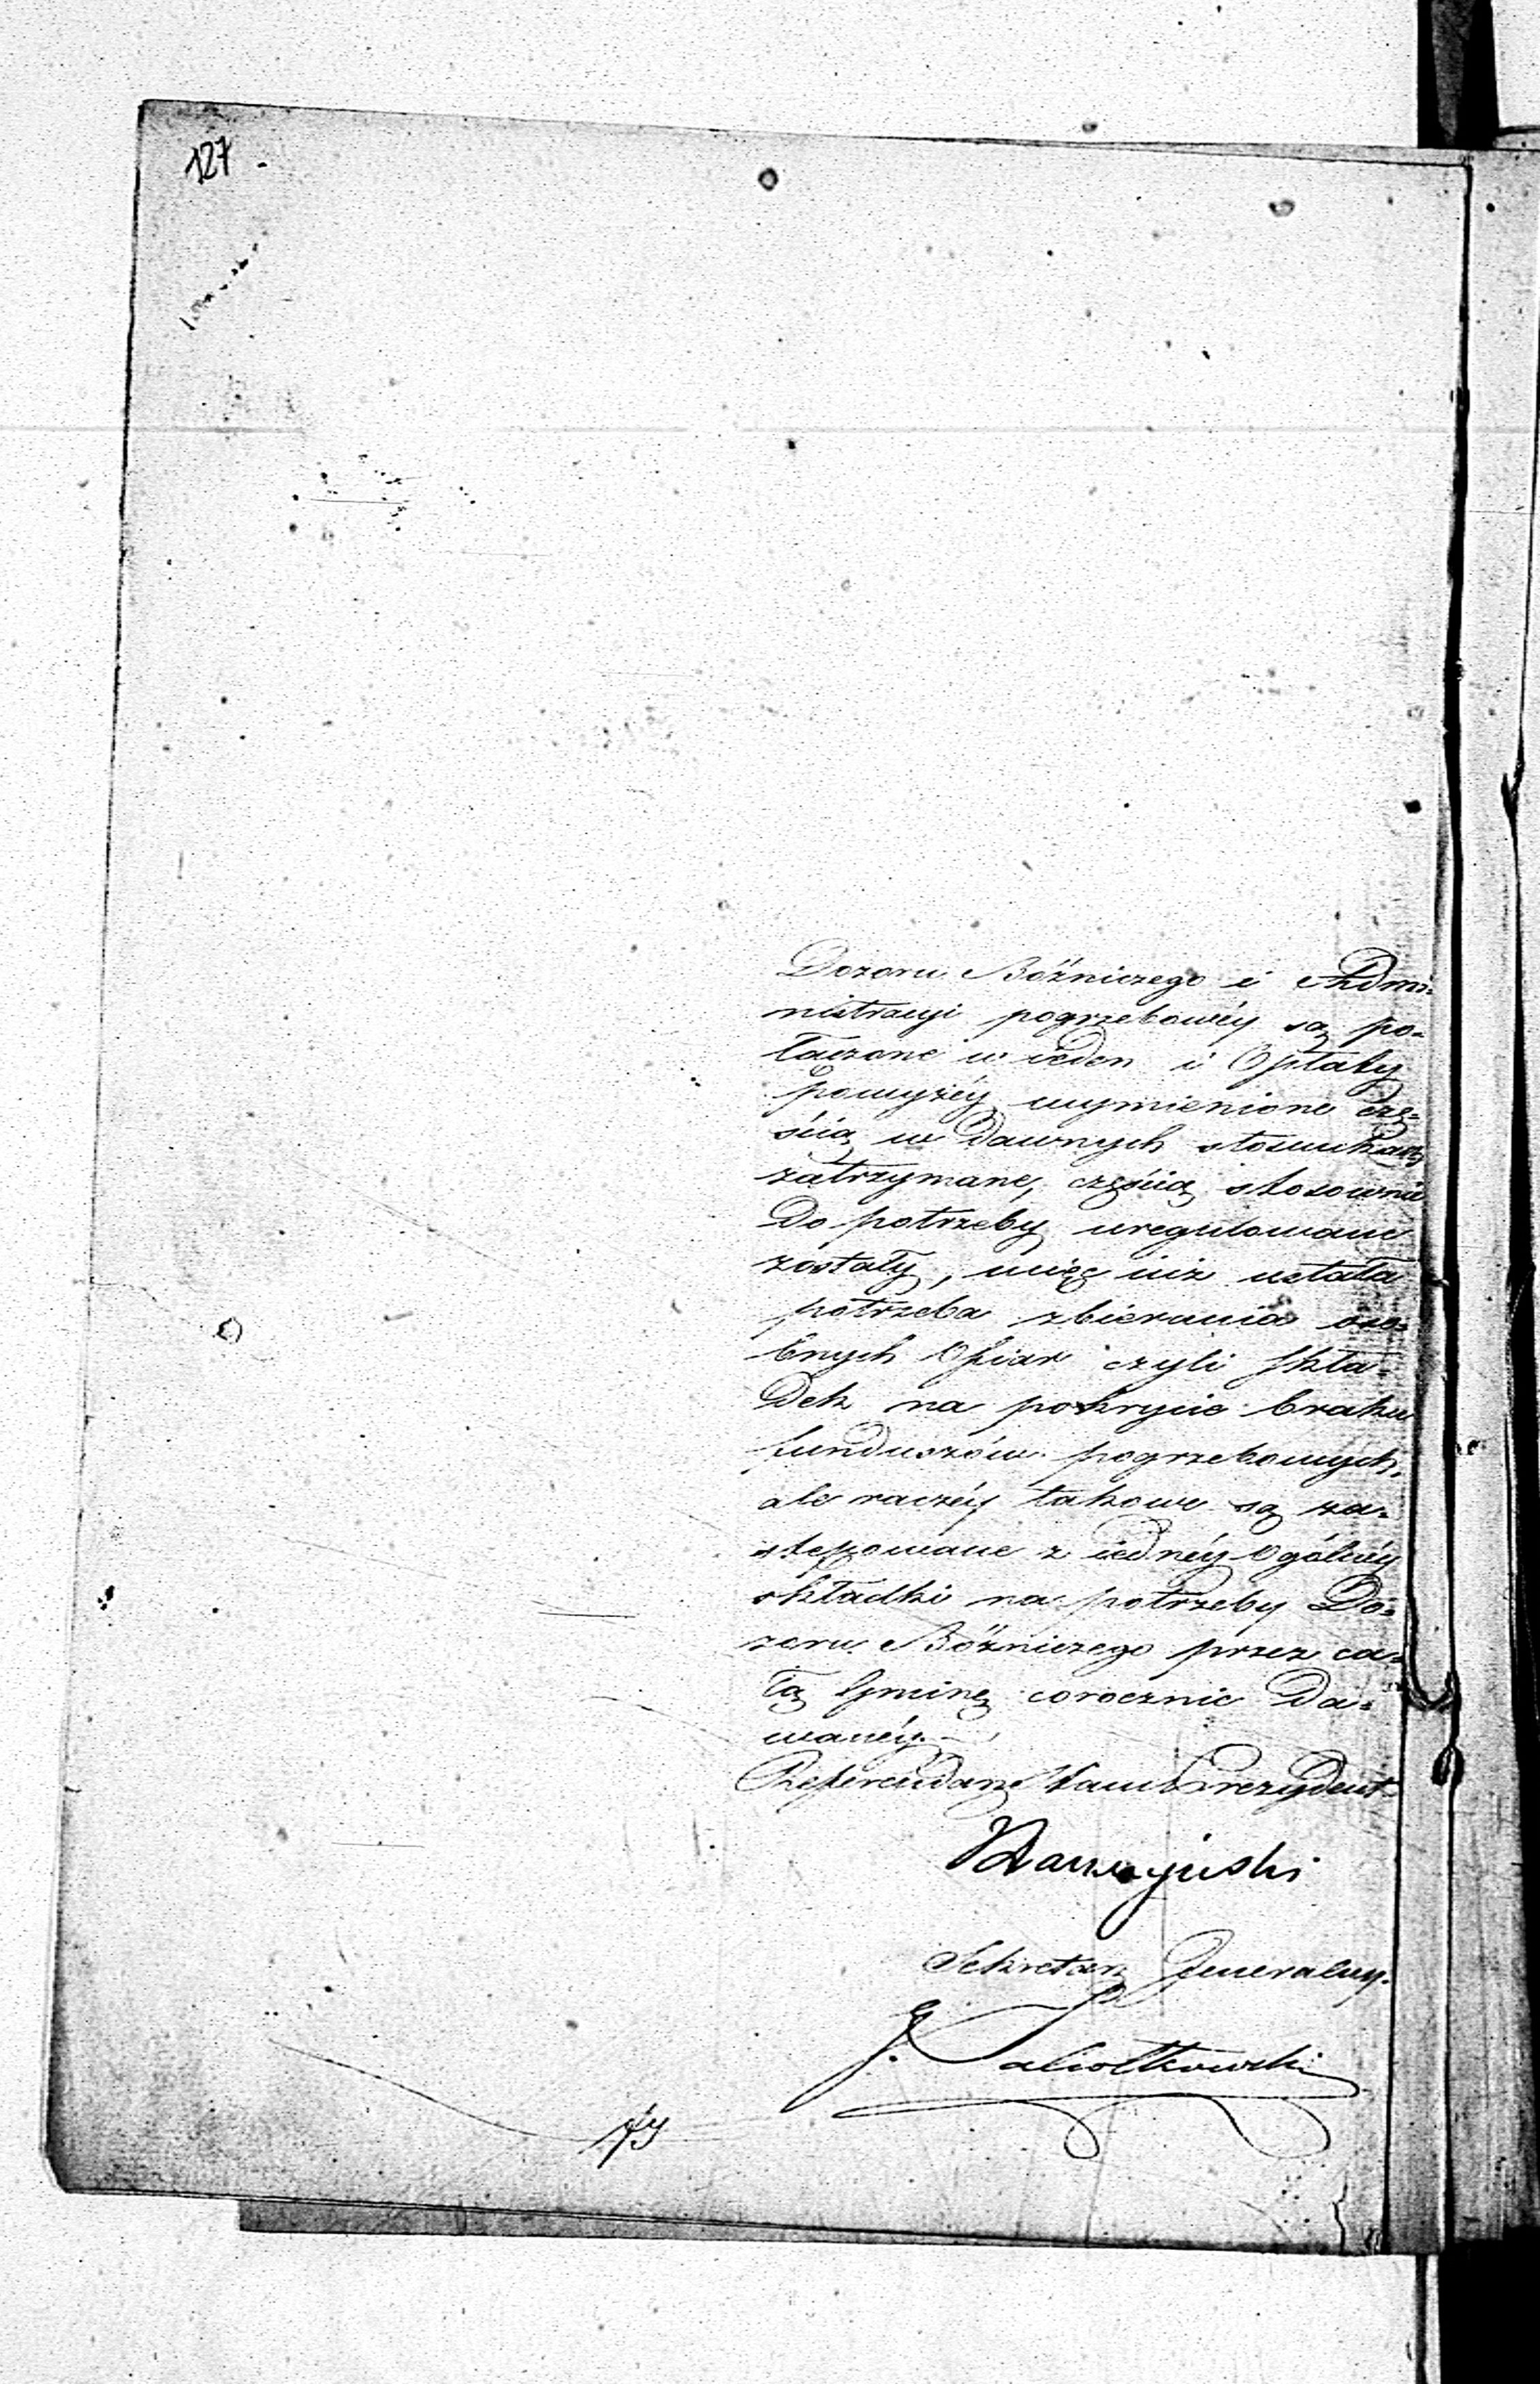 127
Dozoru Bóźniczego i Admi=
nistracyi pogrzebowéy są po=
łączone w ieden i Opłaty
powyżéy wymienione czę=
ścią w dawnych stosunkach
zatrzymane, częścią stosownie
do potrzeby uregulowane
zostały, więc iuż ustała
potrzeba zbierania oso=
bnych Ofiar czyli skła=
dek na pokrycie braku
funduszów pogrzebowych,
ale raczéy takowe są za=
stępowane z iednéy Ogólnéy
składki na potrzeby Do=
zoru Bóźniczego przez ca=
łą Gminę corocznie da=
wanéy.
Referendarz Stanu Prezydent
Sekretarz Jeneralny.
G.